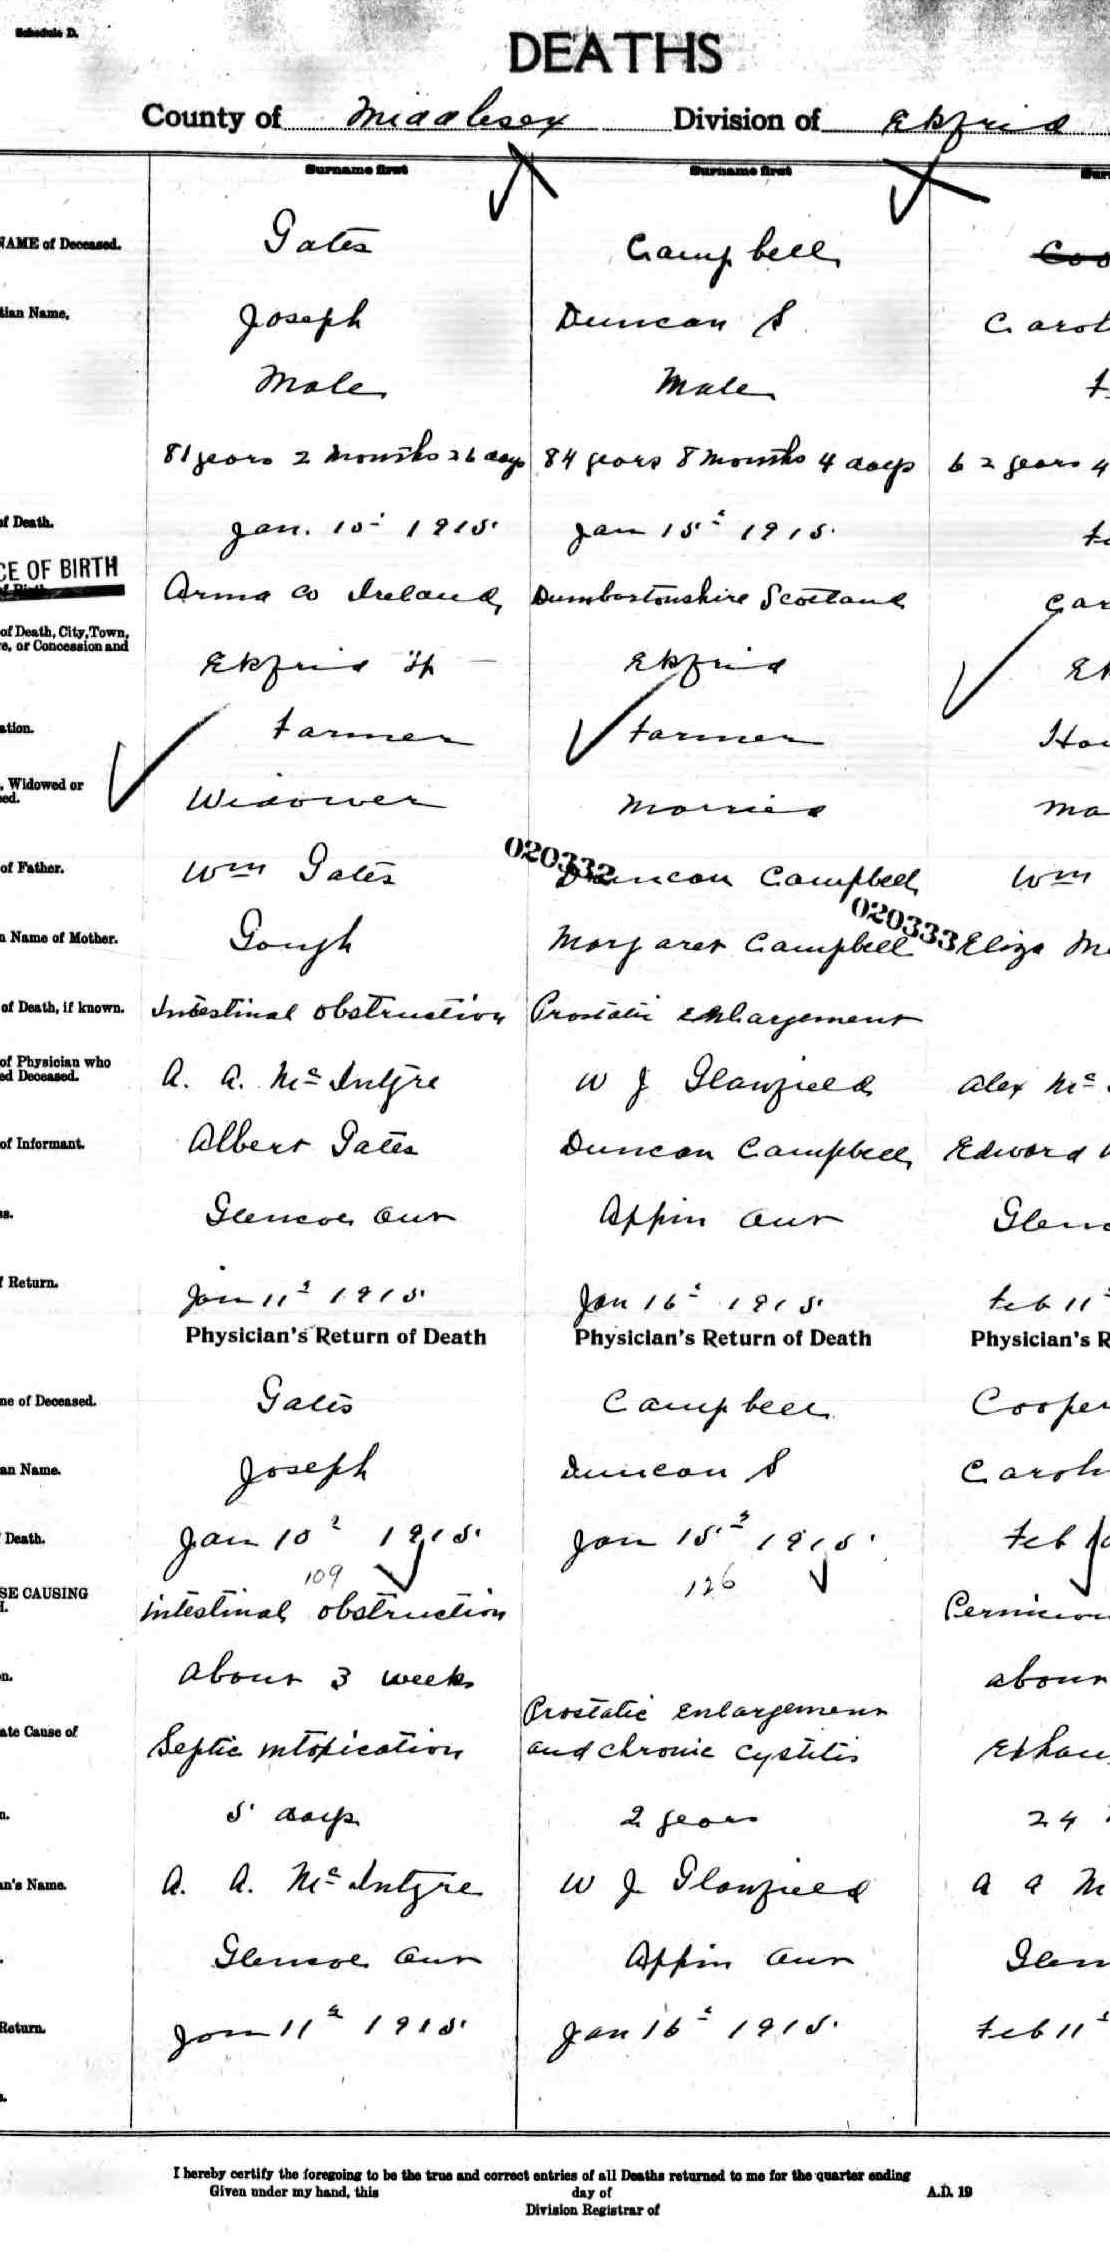 Schedule D.
DEATHS
County of Middlesex Division of Ekfrid
Surname first Surname first Sur
NAME of Deceased. Gates Campbell Coo
tian Name, Joseph Duncan S Carol
Male Male F
81 years 2 months 26 days 84 years 8 months 4 days 62 years 4
of Death. Jan. 10 1915 Jan 15 1915 Fe
CE OF BIRTH Arma Co Ireland Dumbartonshire Scotland Car
of Death, City, Town,
re, or Concession and Ekfrid Tp Ekfrid Ek
ation. Farmer Farmer Hou
, Widowed or
ed. Widower Married Ma
of Father. Wm Gates Duncan Campbell Wm
020332
020333
n Name of Mother. Gough Margaret Campbell Eliza Mc
of Death, if known. Intestinal obstruction Prostatic enlargement
of Physician who
ed Deceased. A. A. McIntyre W J Glanfield Alex Mc
of Informant. Albert Gates Duncan Campbell Edward
ss. Glencoe Ont Appin Ont Glenc
f Return. Jan 11 1915 Jan 16 1915 Feb 11
Physician's Return of Death Physician's Return of Death Physician's R
me of Deceased. Gates Campbell Cooper
an Name. Joseph Duncan S Caroli
Death. Jan 10 1915 Jan 15 1915 Feb
109 126
SE CAUSING
H. intestinal obstruction Perniciou
n. about 3 weeks about
ate Cause of Septic intoxication Prostatic enlargement
and chronic cystitis Exhau
n. 5 days 2 years 24
an's Name. A. A. McIntyre W J Glanfield A A M
Glencoe Ont Appin Ont Glen
Return. Jan 11 1915 Jan 16 1915 Feb 11
s.
I hereby certify the foregoing to be the true and correct entries of all Deaths returned to me for the quarter ending
Given under my hand, this day of A.D. 19
Division Registrar of